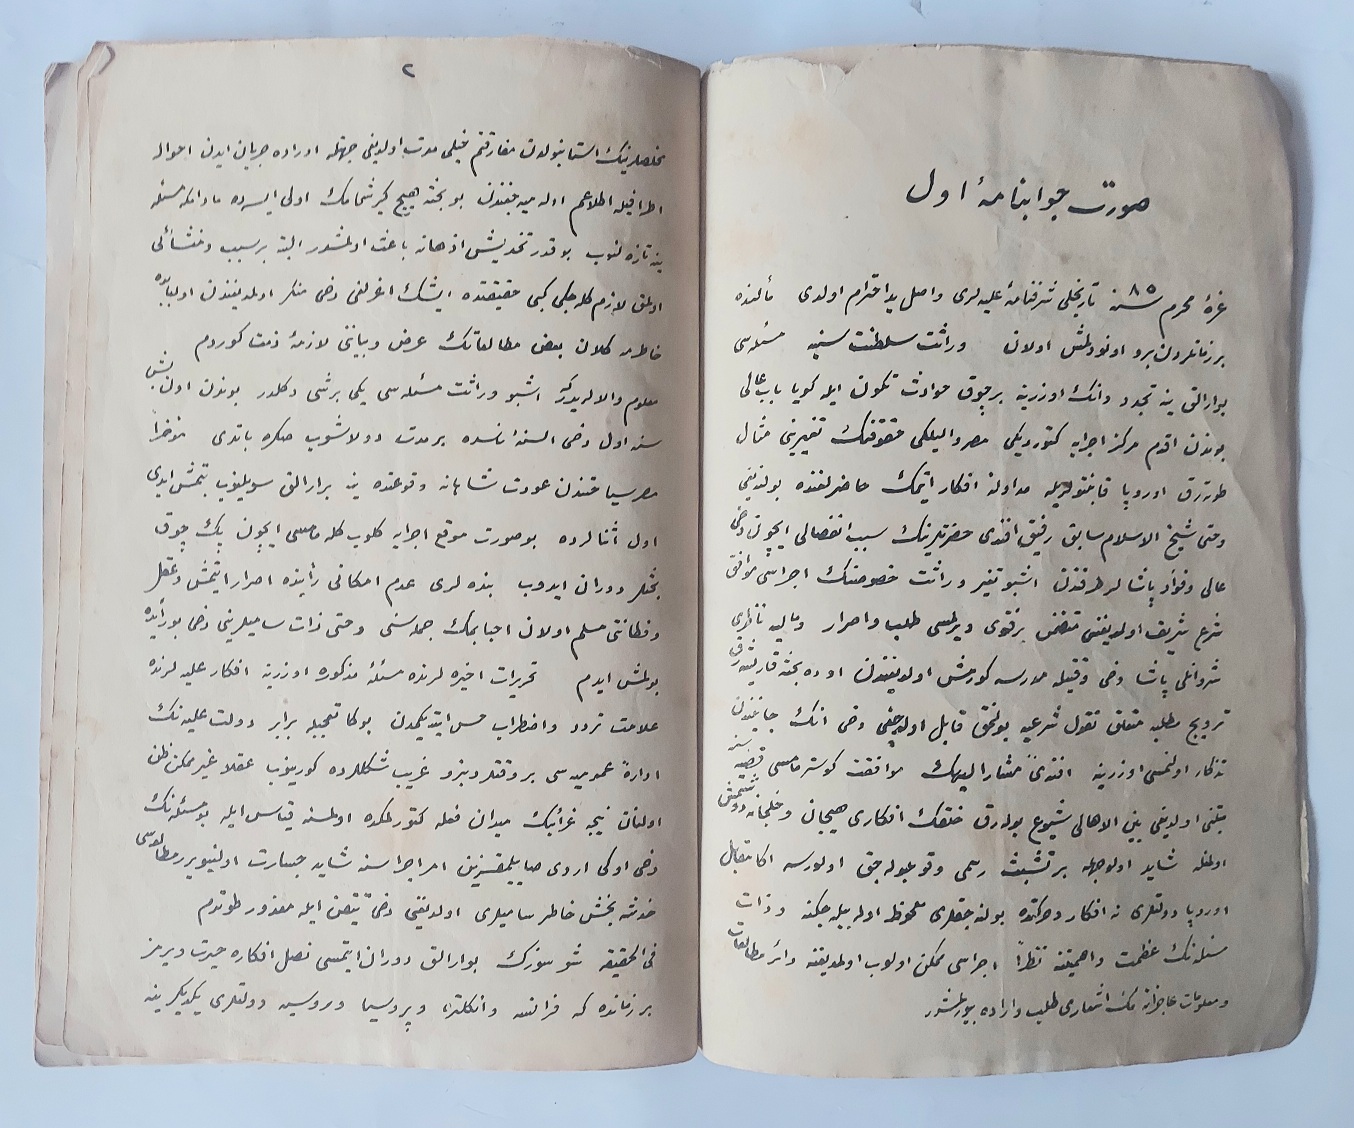 صورت جوابنامهٔ اول
غرهٔ محرم سنه ٨٥ تاریخلی شرفنامهٔ علیه لری واصل ید احترام اولدی مألنده
بر زمانلردن برو اونودلمش اولان وراثت سلطنت سنیه مسئله سی
بو ارالق ینه تجدد و انك اوزرینه بر چوق حوادث تكون ایله كویا باب عالی
بوندن اقدم مركز اجرایه كتوردیكی مصر والیلكی حقوقنك تغییرینی مثال
طوته رق اوروپا قابنتولریله مداولهٔ افكار ایتمك حاضرلغنده بولندیغی
وحتی شیخ الاسلام سابق رفیق افندی حضرتلرینك سبب انفصالی ایچون دخی
عالی وفؤاد پاشالر طرفندن اشبو تغیر وراثت خصوصنك اجراسی موافق
شرع شریف اولدیغنی متضمن بر فتوی ویرلمسی طلب و اصرار ومالیه ناظری
شروانلی پاشا دخی وقتیله مدرسه كورمش اولدیغندن او ده بحثه قاریشه رق
ترویج مطلبه متعلق نقول شرعیه بولنمق قابل اوله جغی دخی انك جانبندن
تذكار اولنمسی اوزرینه افندئ مشار الیهك موافقت كوسترمامسی قضیه سنه
مبتنی اولدیغی بین الاهالی شیوع بوله رق خلقك افكاری هیجان و خلجانه دوشمش
اولمغله شاید اولوجهله بر تشبث رسمی وقوعبوله جق اولورسه اكا مقابل
اوروپا دولتلری نه افكار و حركتده بولنه جقلری ملحوظ اوله بیله جكنه و ذات
مسئله نك عظمت و اهمیتنه نظراً اجراسی ممكن اولوب اولمدیغنه دائر مطالعات
و معلومات عاجزانه مك اشعاری طلب و اراده بیورلمشدر
٢
مخلصلرینك استانبولدن مفارقتم خیلی مدت اولدیغی جهتله اوراده جریان ایدن احواله
اطرافیله اطلاعم اوله میه جغندن بو بحثه هیچ كیرشمامك اولی ایسه ده مادامكه مسئله
ینه تازه لنوب بو قدر تخدیش اذهانه باعث اولمشدر البته بر سبب و منشائی
اولمق لازم كله جكی كبی حقیقتده ایشك اغرلغی دخی منكر اولمدیغندن اولبابده
خاطرمه كلان بعض مطالعاتك عرض و بیاننی لازمهٔ ذمت كوردم
معلوم والالریدركه اشبو وراثت مسئله سی یكی بر شی دكلدر بوندن اون بش
سنه اول دخی السنهٔ ناسده بر مدت دولاشوب صكره باتدی مؤخراً
مصر سیاحتندن عودت شاهانه وقوعنده ینه بر ارالق سویلنوب بتمش ایدی
اول اثنالرده بو صورت موقع اجرایه كلوب كله مامسی ایچون پك چوق
بحثلر دوران ایدوب بنده لری عدم امكانی رأینده اصرار ایتمش و عقل
وفطانتی مسلم اولان احبابمك جمله سنی وحتی ذات سامیلرینی دخی بو رأیده
بولمش ایدم تحریرات اخیره لرنده مسئلهٔ مذكوره اوزرینه افكار علیه لرنده
علامت تردد و اضطراب حس ایتدیكمدن بوكا تعجبله برابر دولت علیه نك
ادارهٔ عمومیه سی بر وقتدنبرو غریب شكللرده كورینوب عقلا غیر ممكن ظن
اولنان نیجه غرائبك میدان فعله كتورلمكده اولمسنه قیاس ایله بو مسئله نك
دخی اوكی اردی صاییلمقسزین امر اجراسنه شاید جسارت اولنیویرر مطالعه سی
خدشه بخش خاطر سامیلری اولدیغنی دخی تیقن ایله معذور طوتدم
فی الحقیقه شو سوزك بو ارالق دوران ایتمسی نصل افكاره حیرت ویرمز
بر زمانده كه فرانسه و انكلتره و پروسیا و روسیه دولتلری یكدیكرینه